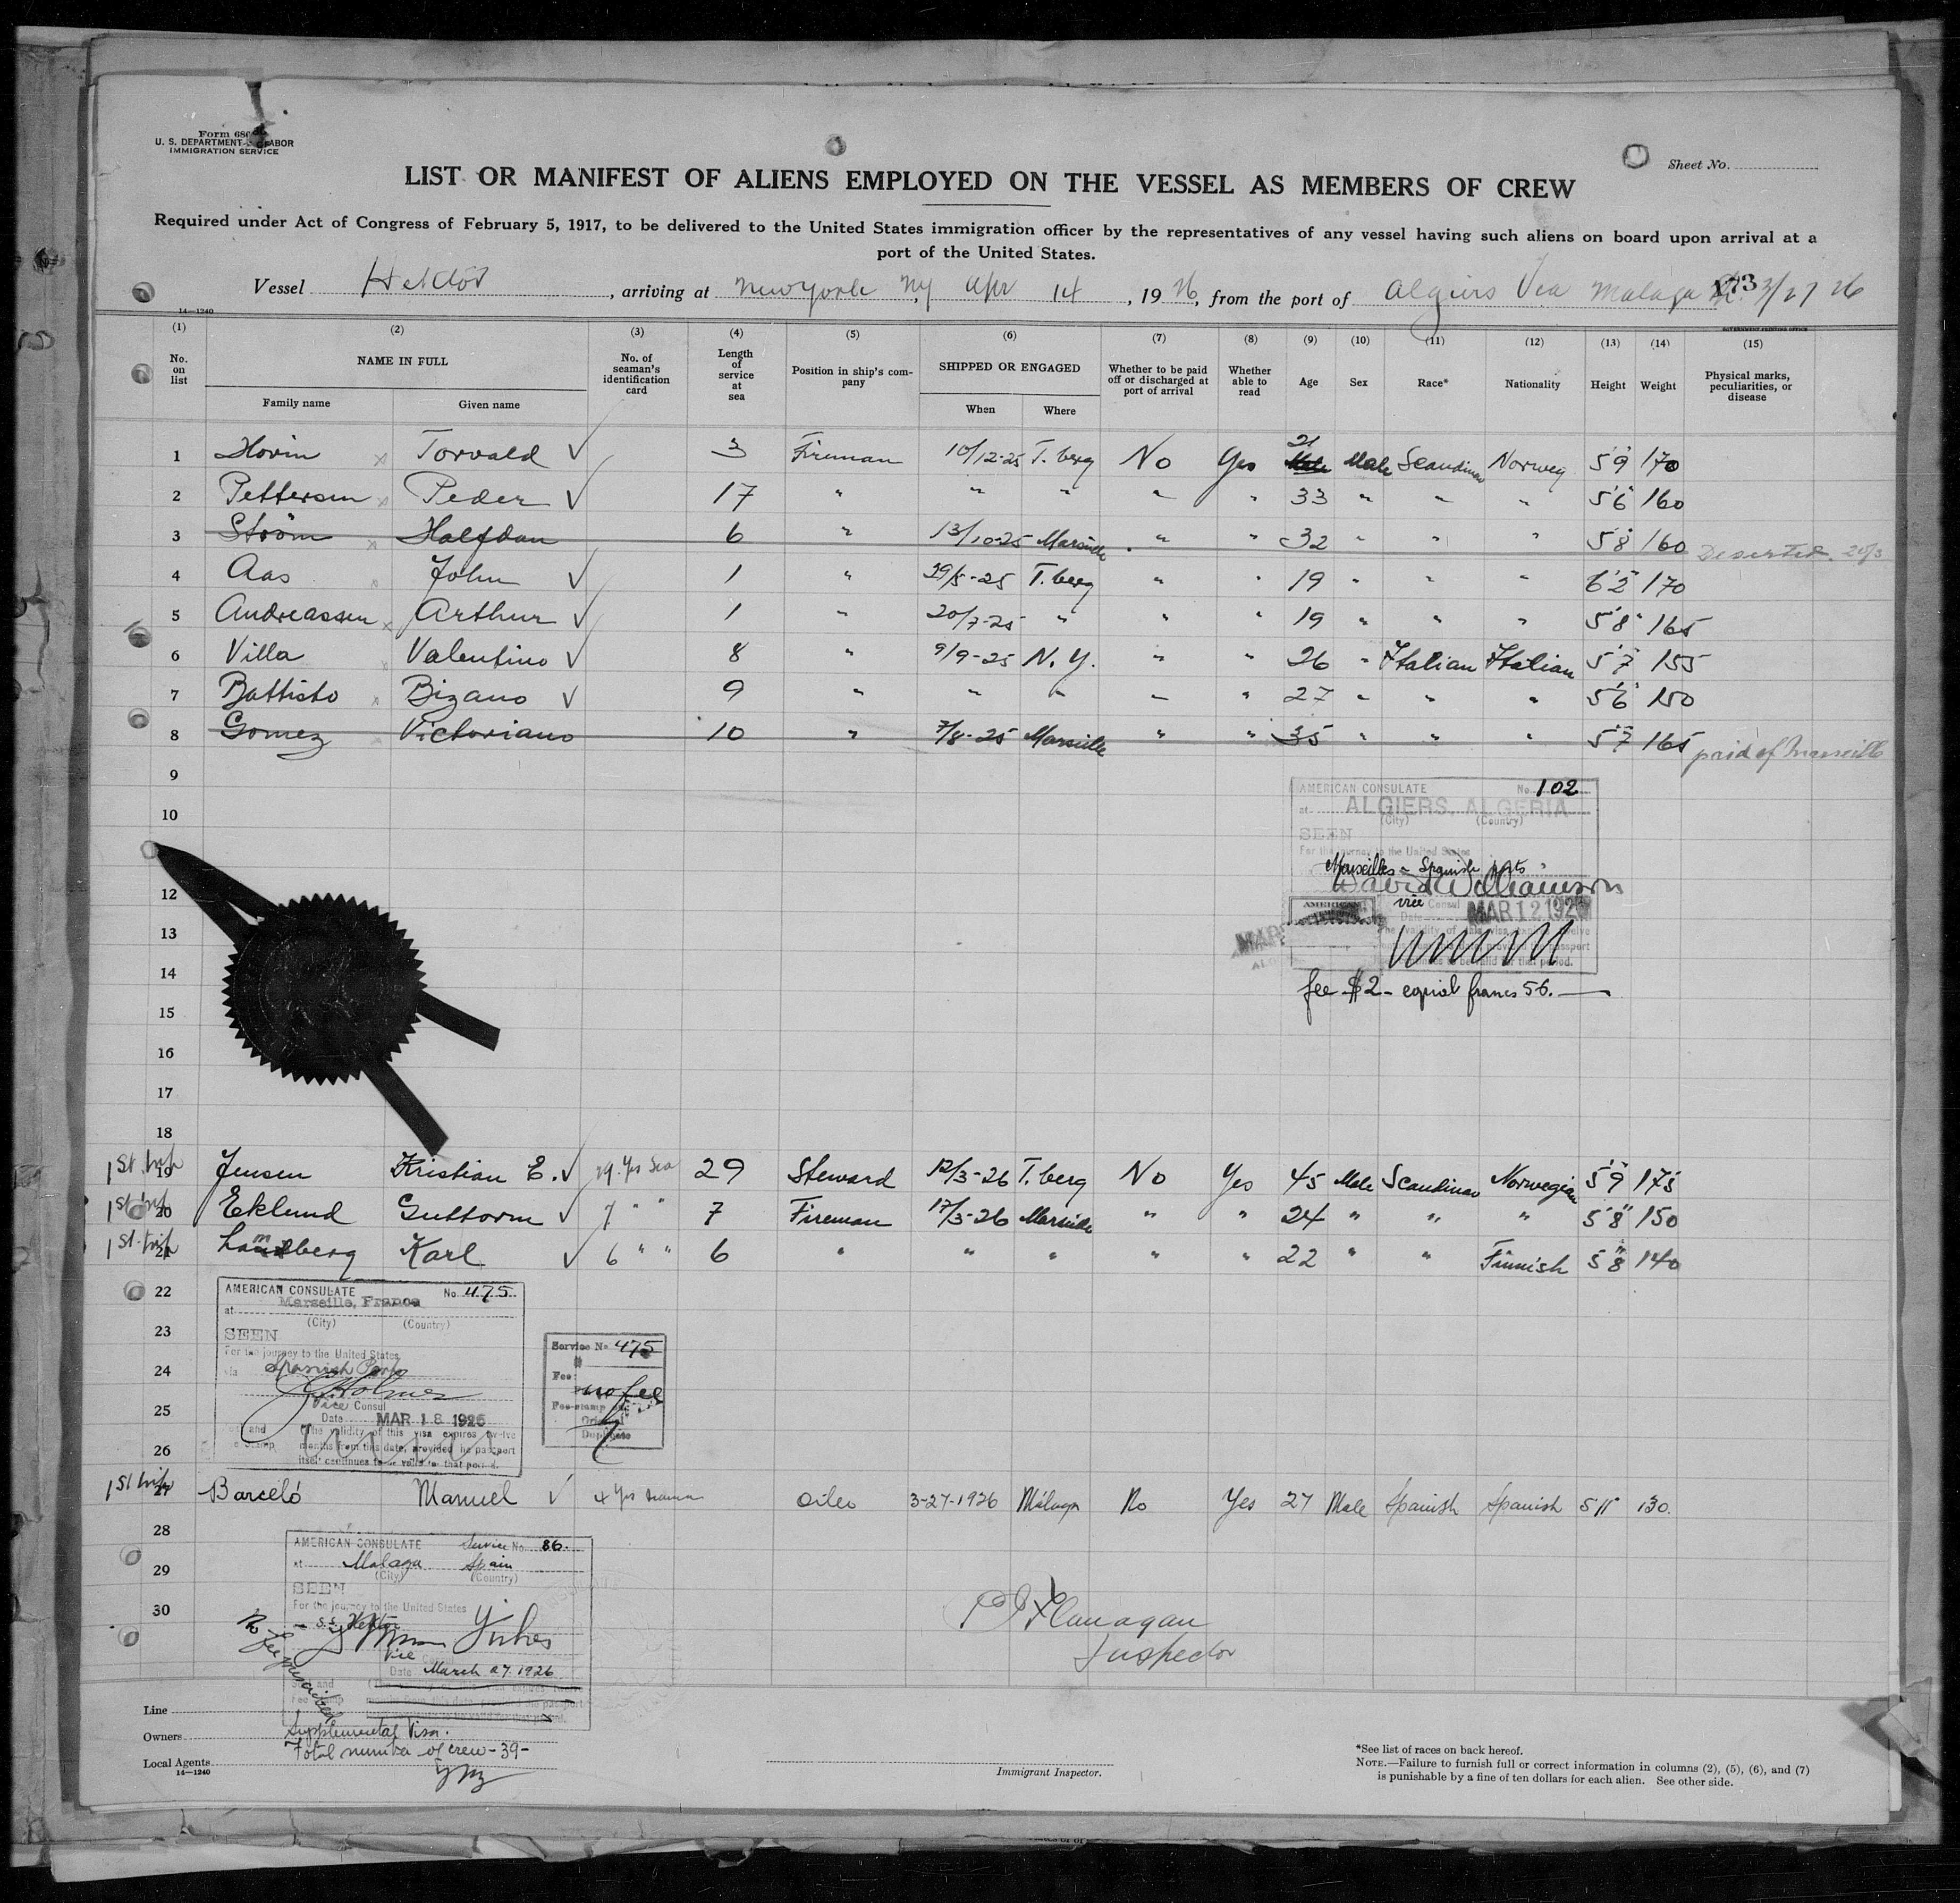 Form 680
U. S. DEPARTMENT OF LABOR
IMMIGRATION SERVICE
Sheet No.
LIST OR MANIFEST OF ALIENS EMPLOYED ON THE VESSEL AS MEMBERS OF CREW
Required under Act of Congress of February 5, 1917, to be delivered to the United States immigration officer by the representatives of any vessel having such aliens on board upon arrival at a
port of the United States.
Vessel Hektor, arriving at New York NY Apr 14, 1926, from the port of Algiers Via Malaga 3/27 26
14—1240
GOVERNMENT PRINTING OFFICE
(1) (2) (3) (4) (5) (6) (7) (8) (9) (10) (11) (12) (13) (14) (15)
No. on list NAME IN FULL No. of seaman's identification card Length of service at sea Position in ship's company SHIPPED OR ENGAGED Whether to be paid off or discharged at port of arrival Whether able to read Age Sex Race* Nationality Height Weight Physical marks, peculiarities, or disease
Family name Given name When Where
1 Hovin Torvald ✓ 3 Fireman 10/12-25 T.berg No Yes 21 Male Scandinav Norweg 5'9" 170
2 Pettersen Peder ✓ 17 " " " " " 33 " " " 5'6" 160
3 Strøm Halfdan 6 " 13/10-25 Marseille " " 32 " " " 5'8" 160 Deserted 20/3
4 Aas John ✓ 1 " 29/5-25 T.berg " " 19 " " " 6'2" 170
5 Andreassen Arthur ✓ 1 " 20/7-25 " " " 19 " " " 5'8" 165
6 Villa Valentino ✓ 8 " 9/9-25 N.Y. " " 26 " Italian Italian 5'7" 155
7 Battisto Bizano ✓ 9 " " " " " 27 " " " 5'6" 150
8 Gomez Victoriano 10 " 7/8-25 Marseille " " 35 " " " 5'7" 165 paid of Marseille
9
10
12
13
14
15
16
17
18
AMERICAN CONSULATE No. 102
at ALGIERS, ALGERIA
(City) (Country)
SEEN
For the journey to the United States
Marseilles - Spanish ports
David Williamson
vice Consul
Date MAR 12 1926
fee $2 - equal francs 56.
1st trip 19 Jensen Kristian E. ✓ 29 Yrs Sea 29 Steward 12/3-26 T.berg No Yes 45 Male Scandinav Norwegian 5'9" 175
1st trip 20 Eklund Guttorm ✓ 7 " 7 Fireman 17/3-26 Marseille " " 24 " " " 5'8" 150
1st trip 21 Karl ✓ 6 " " 6 " " " " " 22 " " Finnish 5'8" 140
22
23
24
25
26
AMERICAN CONSULATE No. 475
at Marseille, France
(City) (Country)
SEEN
For the journey to the United States
via Spanish Ports
Holmes
Vice Consul
Date MAR 18 1926
The validity of this visa expires twelve
months from this date, provided the passport
itself continues to be valid for that period.
Service No 475
Fee:
no fee
Fee-stamp on
Original
Duplicate
1st trip 27 Barceló Manuel ✓ 4 Yrs Oiler 3-27-1926 Málaga No Yes 27 Male Spanish Spanish 5 11 130.
28
29
30
AMERICAN CONSULATE Service No. 86.
at Malaga Spain
(City) (Country)
SEEN
For the journey to the United States
S.S. Hektor
Vice
Date March 27, 1926
No fee prescribed
Supplemental Visa.
Total number of crew - 39 -
Flanagan
Inspector
Line
Owners
Local Agents
14—1240
Immigrant Inspector.
*See list of races on back hereof.
NOTE.—Failure to furnish full or correct information in columns (2), (5), (6), and (7)
is punishable by a fine of ten dollars for each alien. See other side.